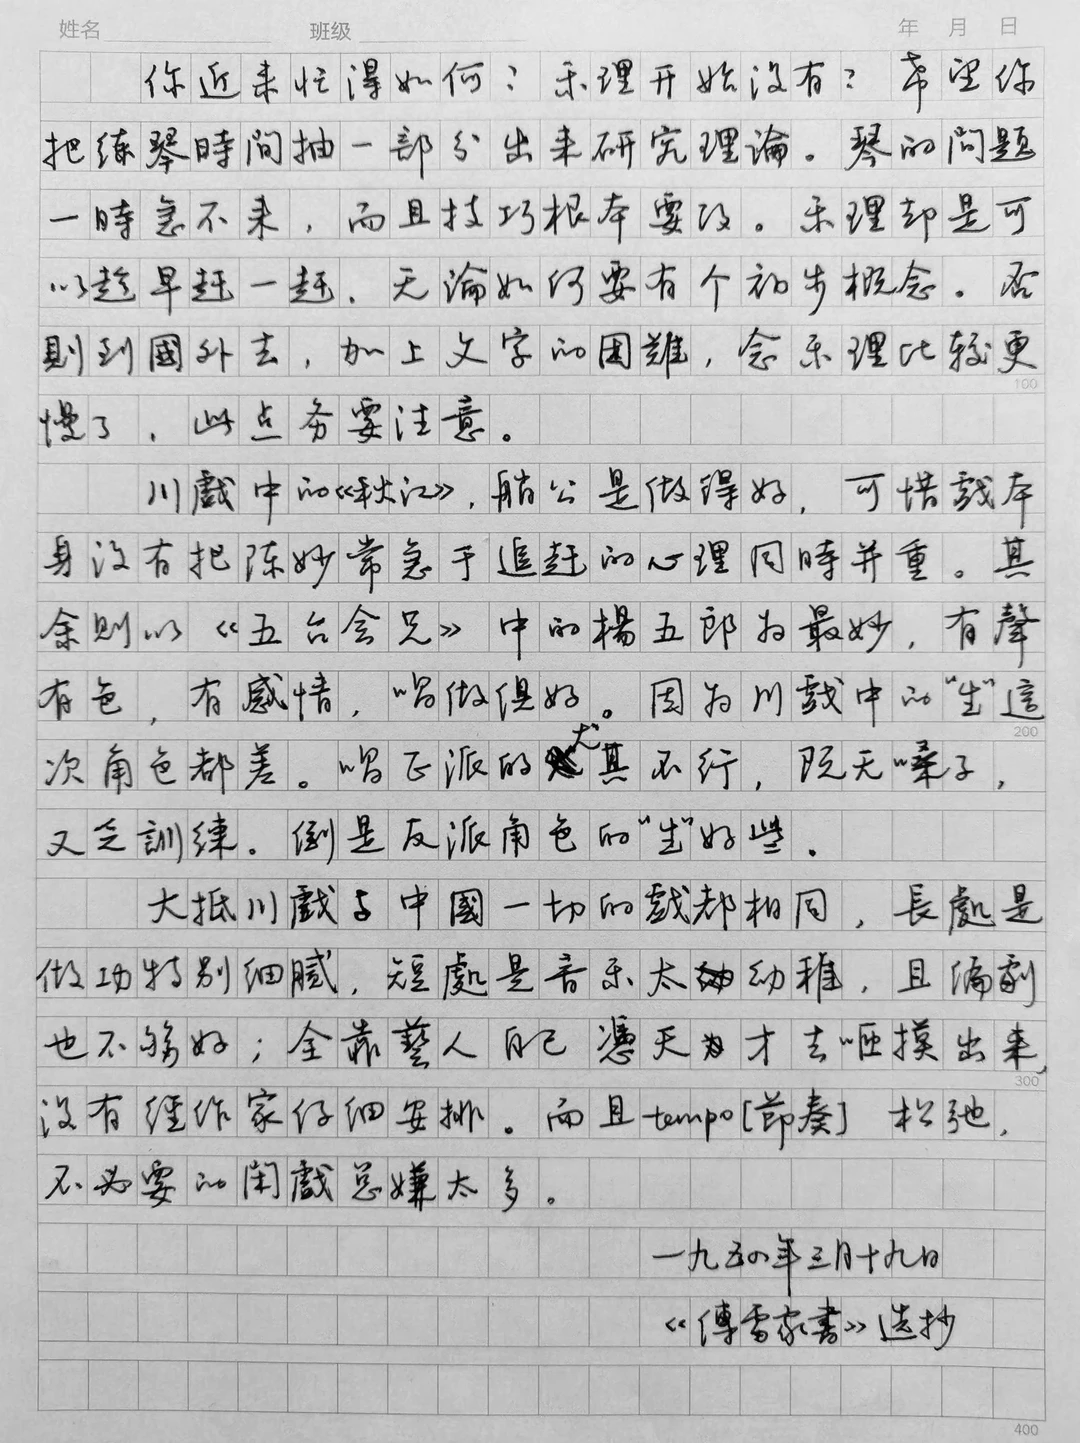 姓名 班级 年 月 日
你近来忙得如何？乐理开始没有？希望你
把练琴時間抽一部分出来研究理論。琴的问题
一時急不来，而且技巧根本要改。乐理却是可
以趁早赶一赶，无論如何要有个初步概念。否
则到國外去，加上文字的困难，念乐理比较更
100
慢了，此点务要注意。
川戲中的《秋江》，艄公是做得好，可惜戲本
身没有把陈妙常急于追赶的心理同時并重。其
余则以《五台会兄》中的楊五郎为最妙，有聲
有色，有感情，唱做俱好。因为川戲中的"生"這
200
次角色都差。唱正派的尤其不行，既无嗓子，
又乏訓練。倒是反派角色的"生"好些。
大抵川戲与中國一切的戲都相同，長處是
做功特别细腻，短處是音乐太幼稚，且编劇
也不够好；全靠藝人自己憑天才去咂摸出来，
300
没有经作家仔细安排。而且tempo[節奏]松弛，
不必要的闲戲总嫌太多。
一九五四年三月十九日
《傅雷家書》选抄
400